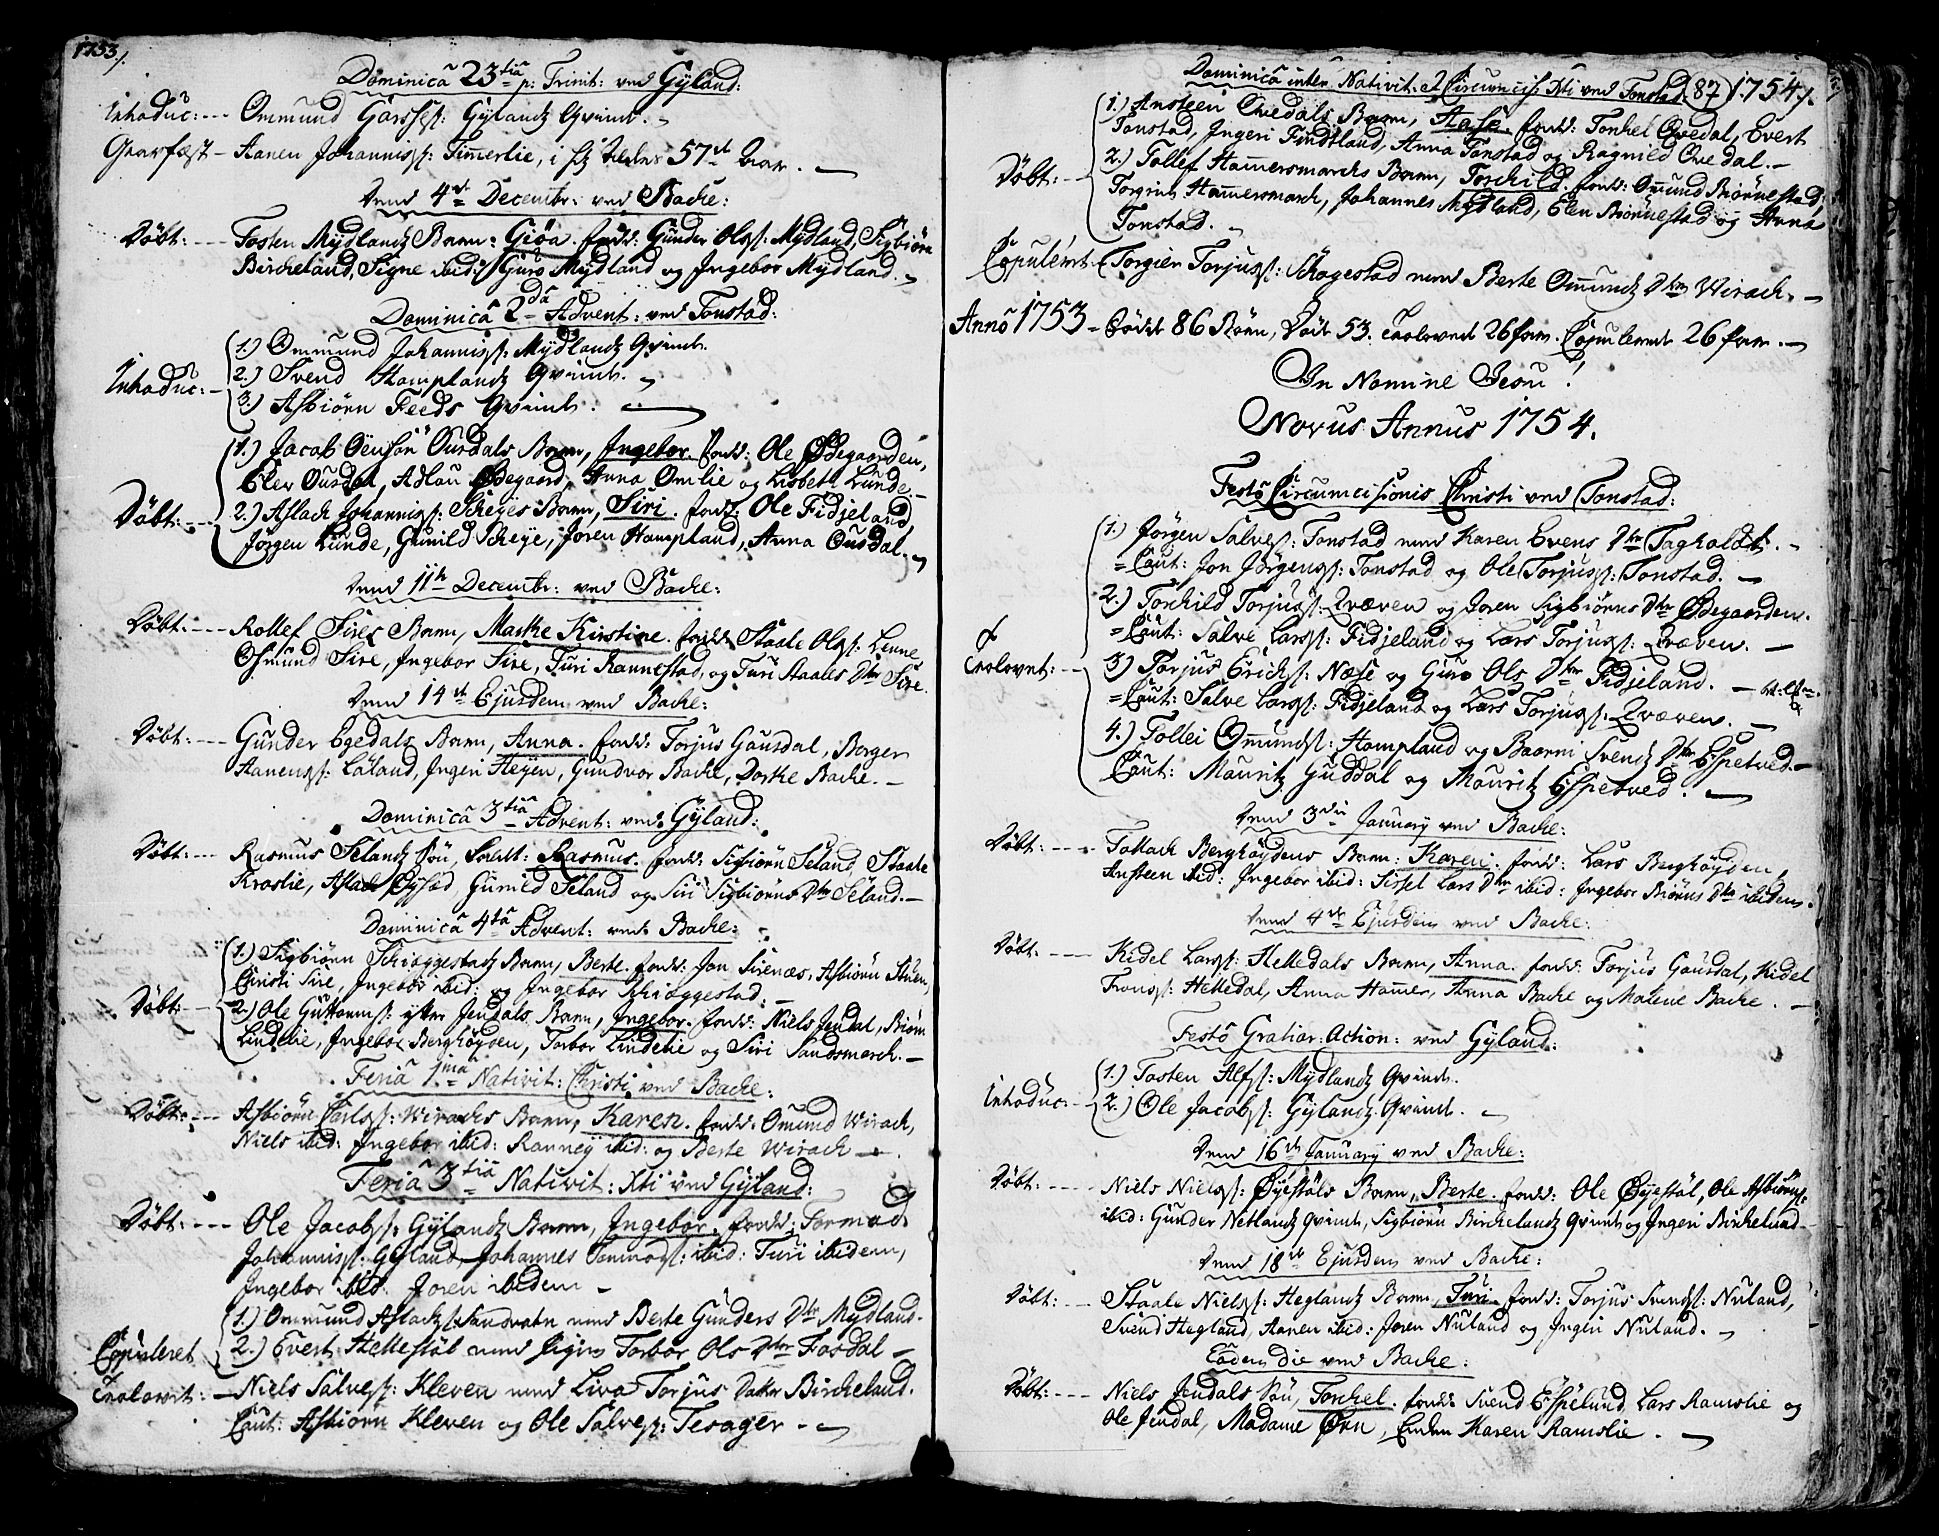 1753./.
Dominicâ 23tiâ p: Trinit: ved Gyland:
Introduc: --- Ommund Garss: Gylandz Qvinde.
Graafæst - Aanen Johanniss: Timmerlie, i sit alders 57de Aar.
Dend 4de Decembr: ved Backe:
Döbt: --- Tosten Mydlandz Barn: Giöa. fadd: Gunder Olss: Mydland, Sigbiörn
Bircheland, Signe ibid: Guro Mydland og Ingebor Mydland.
Dominicâ 2dâ Advent: ved Tonstad:
Introduc: - 1.) Ommund Johanniss: Mydlandz Qvinde.
2.) Svend Hamplandz Qvinde.
3.) Asbiörn Feeds Qvinde.
1.) Jacob Ousdals Barn, Ingebor. fadd: Ole Ødegaarden,
Elev Ousdal, Adlau Ødegaard, Anna Omlie og Lisbeth Lunde.
Döbt: --- 2.) Aslach Johanniss: Scheyes Barn, Siri. fadd: Ole Fidjeland,
Jörgen Lunde, Gunild Scheye, Joren Hampland, Anna Ousdal.
Dend 11te Decembr: ved Backe:
Döbt: --- Rollef Sires Barn, Marte Kirstine. fadd: Staale Olss:
Osmund Sire, Ingebor Sire, Turi Rannestad, og Turi Staales Dtr Sire.
Dend 14de Ejusdem ved Backe:
Döbt: --- Gunder Egedals Barn, Anna. fadd: Torjus Gausdal, Borger
Aanenss: Låland, Ingeri Heyen, Gundvor Backe, Dorthe Backe.
Dominicâ 3tiâ Advent: ved Gyland:
Döbt: --- Rasmus Selandz Sön, Rasmus. fadd: Sigbiörn Seland, Staale
Kroslie, Aslach Gunild Seland og Siri Sigbiörns Dtr Seland.
Dominicâ 4tâ Advent: ved Backe:
1.) Sigbiörn Schioggestadz Barn, Berte. fadd: Jon Sirenæs, Asbiörn Stuen,
Christi Sire, Ingebor ibid: og Ingebor Schioggestad:
Döbt: --- 2.) Ole Guttormss: ytter Jendals Barn, Ingebor. fadd: Niels Jendal, Biörn
Lindelie, Ingebor Berghöyden, Torbor Lindelie og Siri Sandsmarck.
Feriâ 1mâ Nativit: Christi ved Backe:
Döbt: --- Asbiörn Carlss: Wirachs Barn, Karen. fadd: Omund Wirach,
Niels ibid: Ingebor ibid: Ranney ibid: og Berte Wirach
Feriâ 3tiâ Nativit: Xti ved Gyland:
Döbt: --- Ole Jacobss: Gylandz Barn, Ingebor. fadd: Tormod
Johanniss: Gyland, Johannes Tormods: ibid: Turi ibidem,
Ingebor ibid: Joren ibidem
1.) Ommund Aslachs: Sandvatn med Berte Gunders Dtr Mydland.
Copuleret 2.) Evert Hellestöl med Torbor Ols Dtr Fosdal
Trolovet: - Niels Salvess: Kleven med Liva Torjus Datter Bircheland.
Caut: Asbiörn Kleven og Ole Salvess: Tesager
Dominicâ inter Nativit: et Circumcis: Xti ved Tonstad. 87 1754./.
1.) Ansteen Qvedals Barn, Aase. fadd: Tonkel Qvedal, Evert
Tonstad, Ingeri Findtland, Anna Tonstad og Ragnild Qvedal.
Döbt: --- 2.) Tollef Hamersmarchs Barn, Torchild. fadd: Omund Biörnestad,
Torgrim Hamersmarch, Johannes Mydland, Elen Biörnestad og Anna
Tonstad.
Copulerit Torgier Torjuss: Schogestad med Berte Omundz Dtr Wirach.
Annô 1753 - Födt 86 Börn, Död 53. Trolovet 26 par. Copuleret 26 par.
In Nomine Jesu!
Novus Annus 1754.
Festô Circumcisionis Christi ved Tonstad:
1.) Jörgen Salvess: Tonstad med Karen Evens Dtr Tagholdt.
Caut: Jon Jörgenss: Tonstad og Ole Torjuss: Tonstad.
2.) Torchild Torjuss: Qvæven og Joren Sigbiörns Dtr Ødegaarden.
Caut: Salve Larss: Fidjeland og Lars Torjuss: Qvæven.
Trolovet: - 3.) Torjus Erichss: Næse og Guro Ols Dtr Fidjeland.
Caut: Salve Larss: Fidjeland og Lars Torjuss: Qvæven.
4.) Tollei Omundss: Hampland og Baarni Svendz Dtr Espetved.
Caut: Mauritz Guddal og Mauritz Espetved.
Dend 3die January ved Backe:
Döbt: --- Tollach Berghöydens Barn: Karen. fadd: Lars Berghöyden,
Ansteen ibid: Ingebor ibid: Sissel Lars Dtr ibid: Ingebor Biörns Dtr ibidem.
Dend 4de Ejusdem ved Backe:
Döbt: --- Kidel Larss: Helledals Barn, Anna. fadd: Torjus Gausdal, Kidel
Tronss: Helledal, Anna Hamer, Anna Backe og Malene Backe.
Festô Gratiar: Action: ved Gyland:
Introduc: - 1.) Tosten Alfss: Mydlandz Qvinde.
2.) Ole Jacobss: Gylandz Qvinde.
Dend 16de January ved Backe:
Döbt: --- Niels Nielss: Øyestöls Barn, Berte. fadd: Ole Øyestöl, Ole Asbiörnss:
ibid: Gunder Netlandz Qvinde, Sigbiörn Birchelandz Qvinde og Ingeri Bircheland
Dend 18de Ejusdem ved Backe:
Döbt: --- Staale Nielss: Heglandz Barn, Turi. fadd: Torjus Svendss: Nuland,
Svend Hegland, Aanen ibid: Joren Nuland og Ingeri Nuland.
Eodem die ved Backe:
Döbt: --- Niels Jendals Sön, Torchel. fadd: Svend Espelund, Lars Ramslie og
Ole Jendal, Madame Ørn, Karen Ramslie.